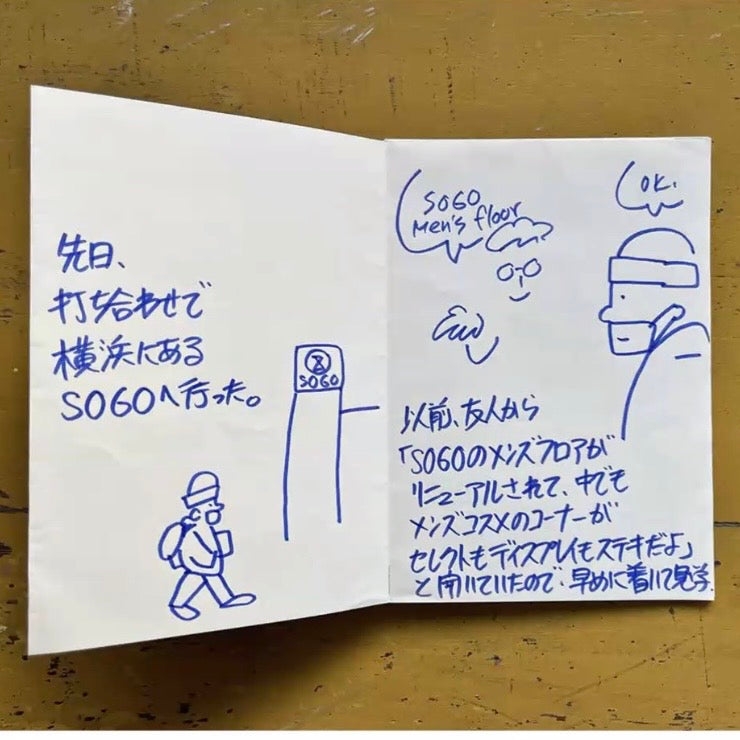 先日、
打ち合わせで
横浜にある
SOGOへ行った。
SOGO
SOGO
Men's floor
OK.
以前、友人から
「SOGOのメンズフロアが
リニューアルされて、中でも
メンズコスメのコーナーが
セレクトもディスプレイもステキだよ」
と聞いていたので、早めに着いて見学.